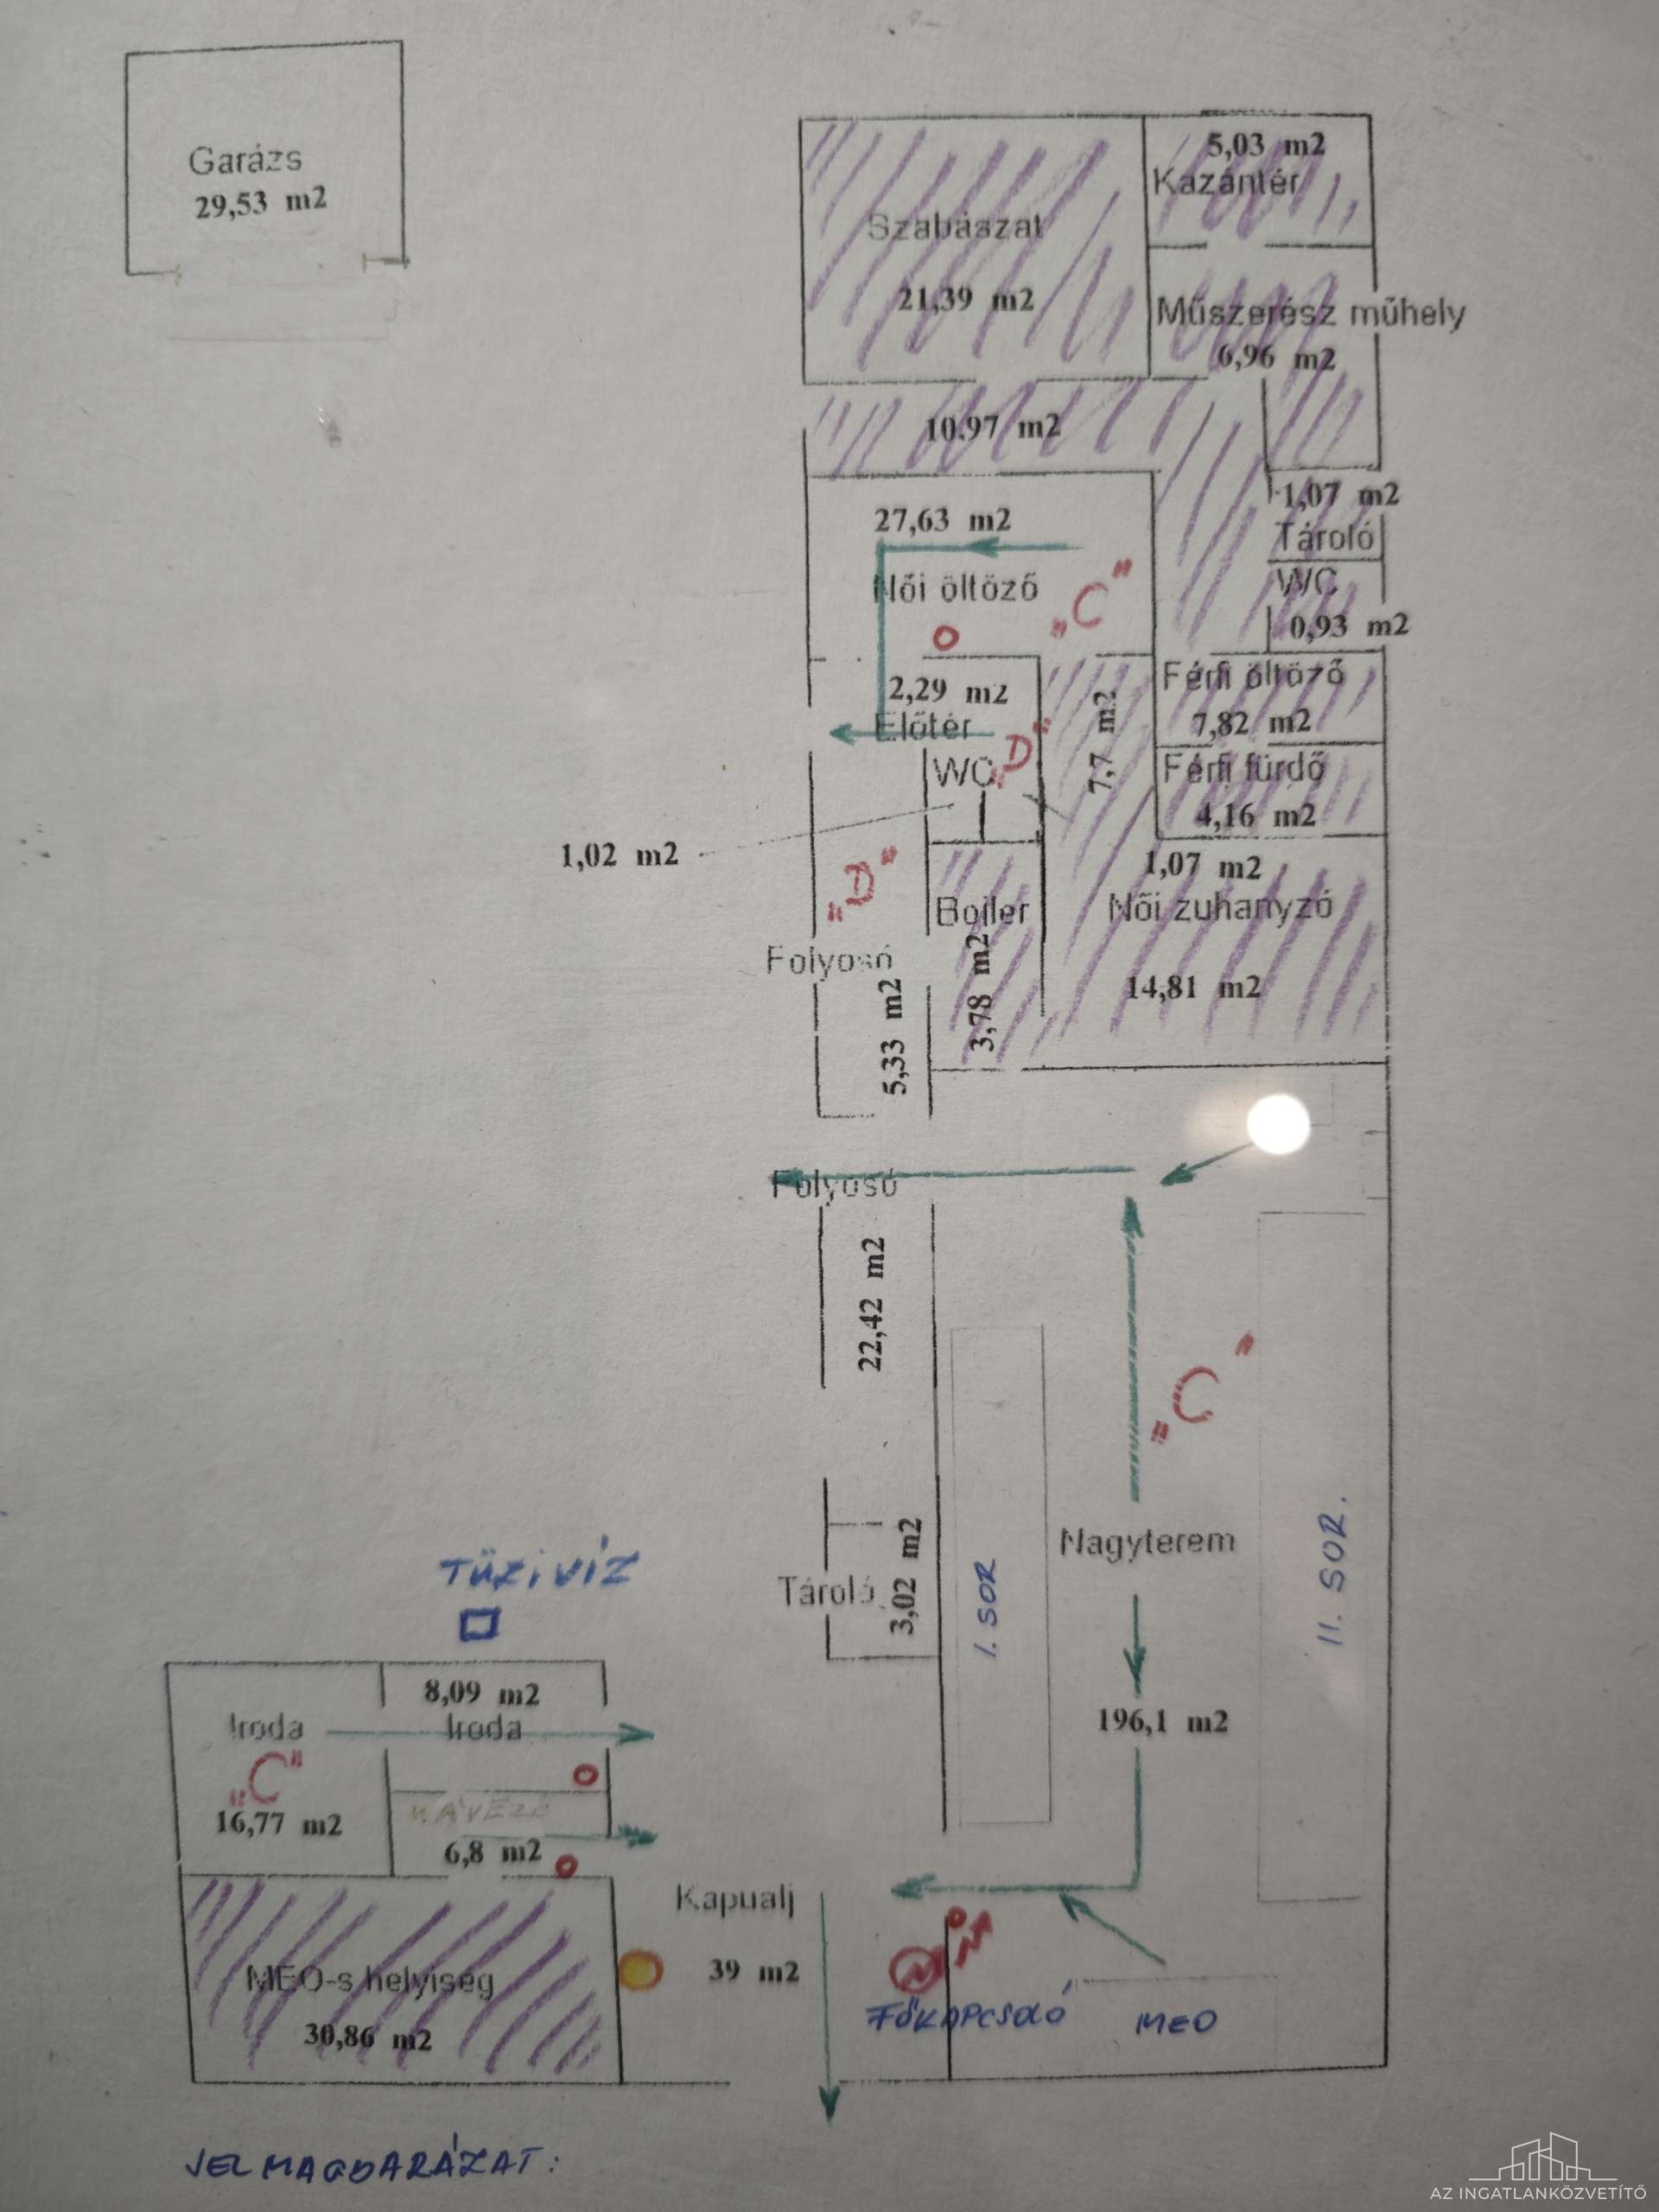 Garázs
29,53 m2
5,03 m2
Kazántér
Szabászat
21,39 m2
Műszerész műhely
6,96 m2
10,97 m2
27,63 m2
Női öltöző
„C”
1,07 m2
Tároló
WC
0,93 m2
2,29 m2
Előtér
WC
„D”
7,7 m2
Férfi öltöző
7,82 m2
Férfi fürdő
4,16 m2
1,02 m2
„D”
Boiler
3,78 m2
1,07 m2
Női zuhanyzó
14,81 m2
Folyosó
5,33 m2
Folyosó
22,42 m2
„C”
Nagyterem
196,1 m2
I. SOR
II. SOR.
Tároló
3,02 m2
TŰZIVÍZ
8,09 m2
Iroda
Iroda
„C”
16,77 m2
KÁVÉZÓ
6,8 m2
Kapualj
39 m2
MEO-s helyiség
30,86 m2
FŐKAPCSOLÓ
MEO
JELMAGYARÁZAT:
AZ INGATLANKÖZVETÍTŐ